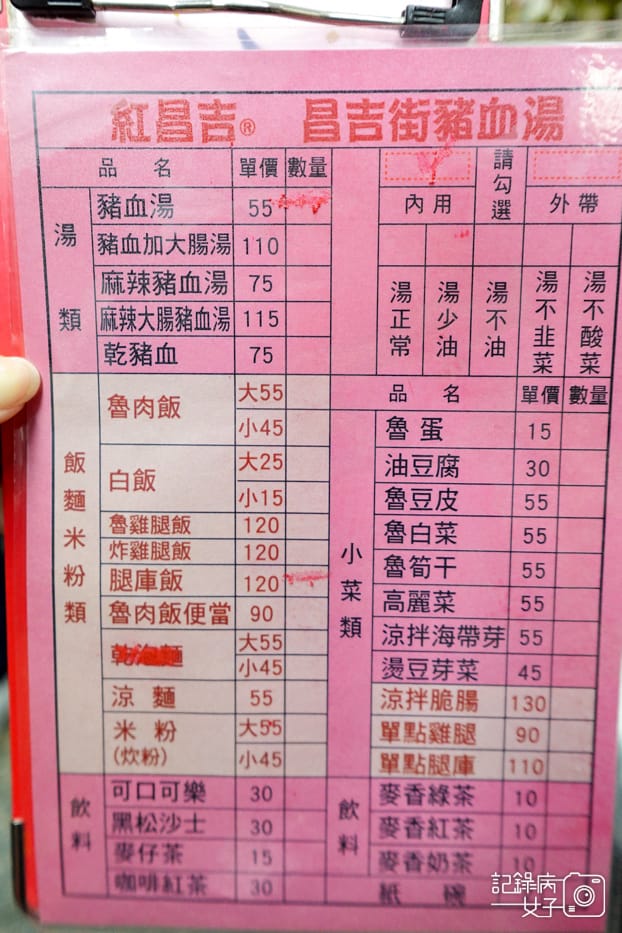 紅昌吉® 昌吉街豬血湯
品名 單價 數量
湯類
豬血湯 55
豬血加大腸湯 110
麻辣豬血湯 75
麻辣大腸豬血湯 115
乾豬血 75
飯麵米粉類
魯肉飯 大55
小45
白飯 大25
小15
魯雞腿飯 120
炸雞腿飯 120
腿庫飯 120
魯肉飯便當 90
麵 大55
小45
涼麵 55
米粉 大55
(炊粉) 小45
飲料
可口可樂 30
黑松沙士 30
麥仔茶 15
咖啡紅茶 30
內用
請勾選
外帶
湯正常
湯少油
湯不油
湯不韭菜
湯不酸菜
品名 單價 數量
小菜類
魯蛋 15
油豆腐 30
魯豆皮 55
魯白菜 55
魯筍干 55
高麗菜 55
涼拌海帶芽 55
燙豆芽菜 45
涼拌脆腸 130
單點雞腿 90
單點腿庫 110
飲料
麥香綠茶 10
麥香紅茶 10
麥香奶茶 10
紙碗
記錄病女子